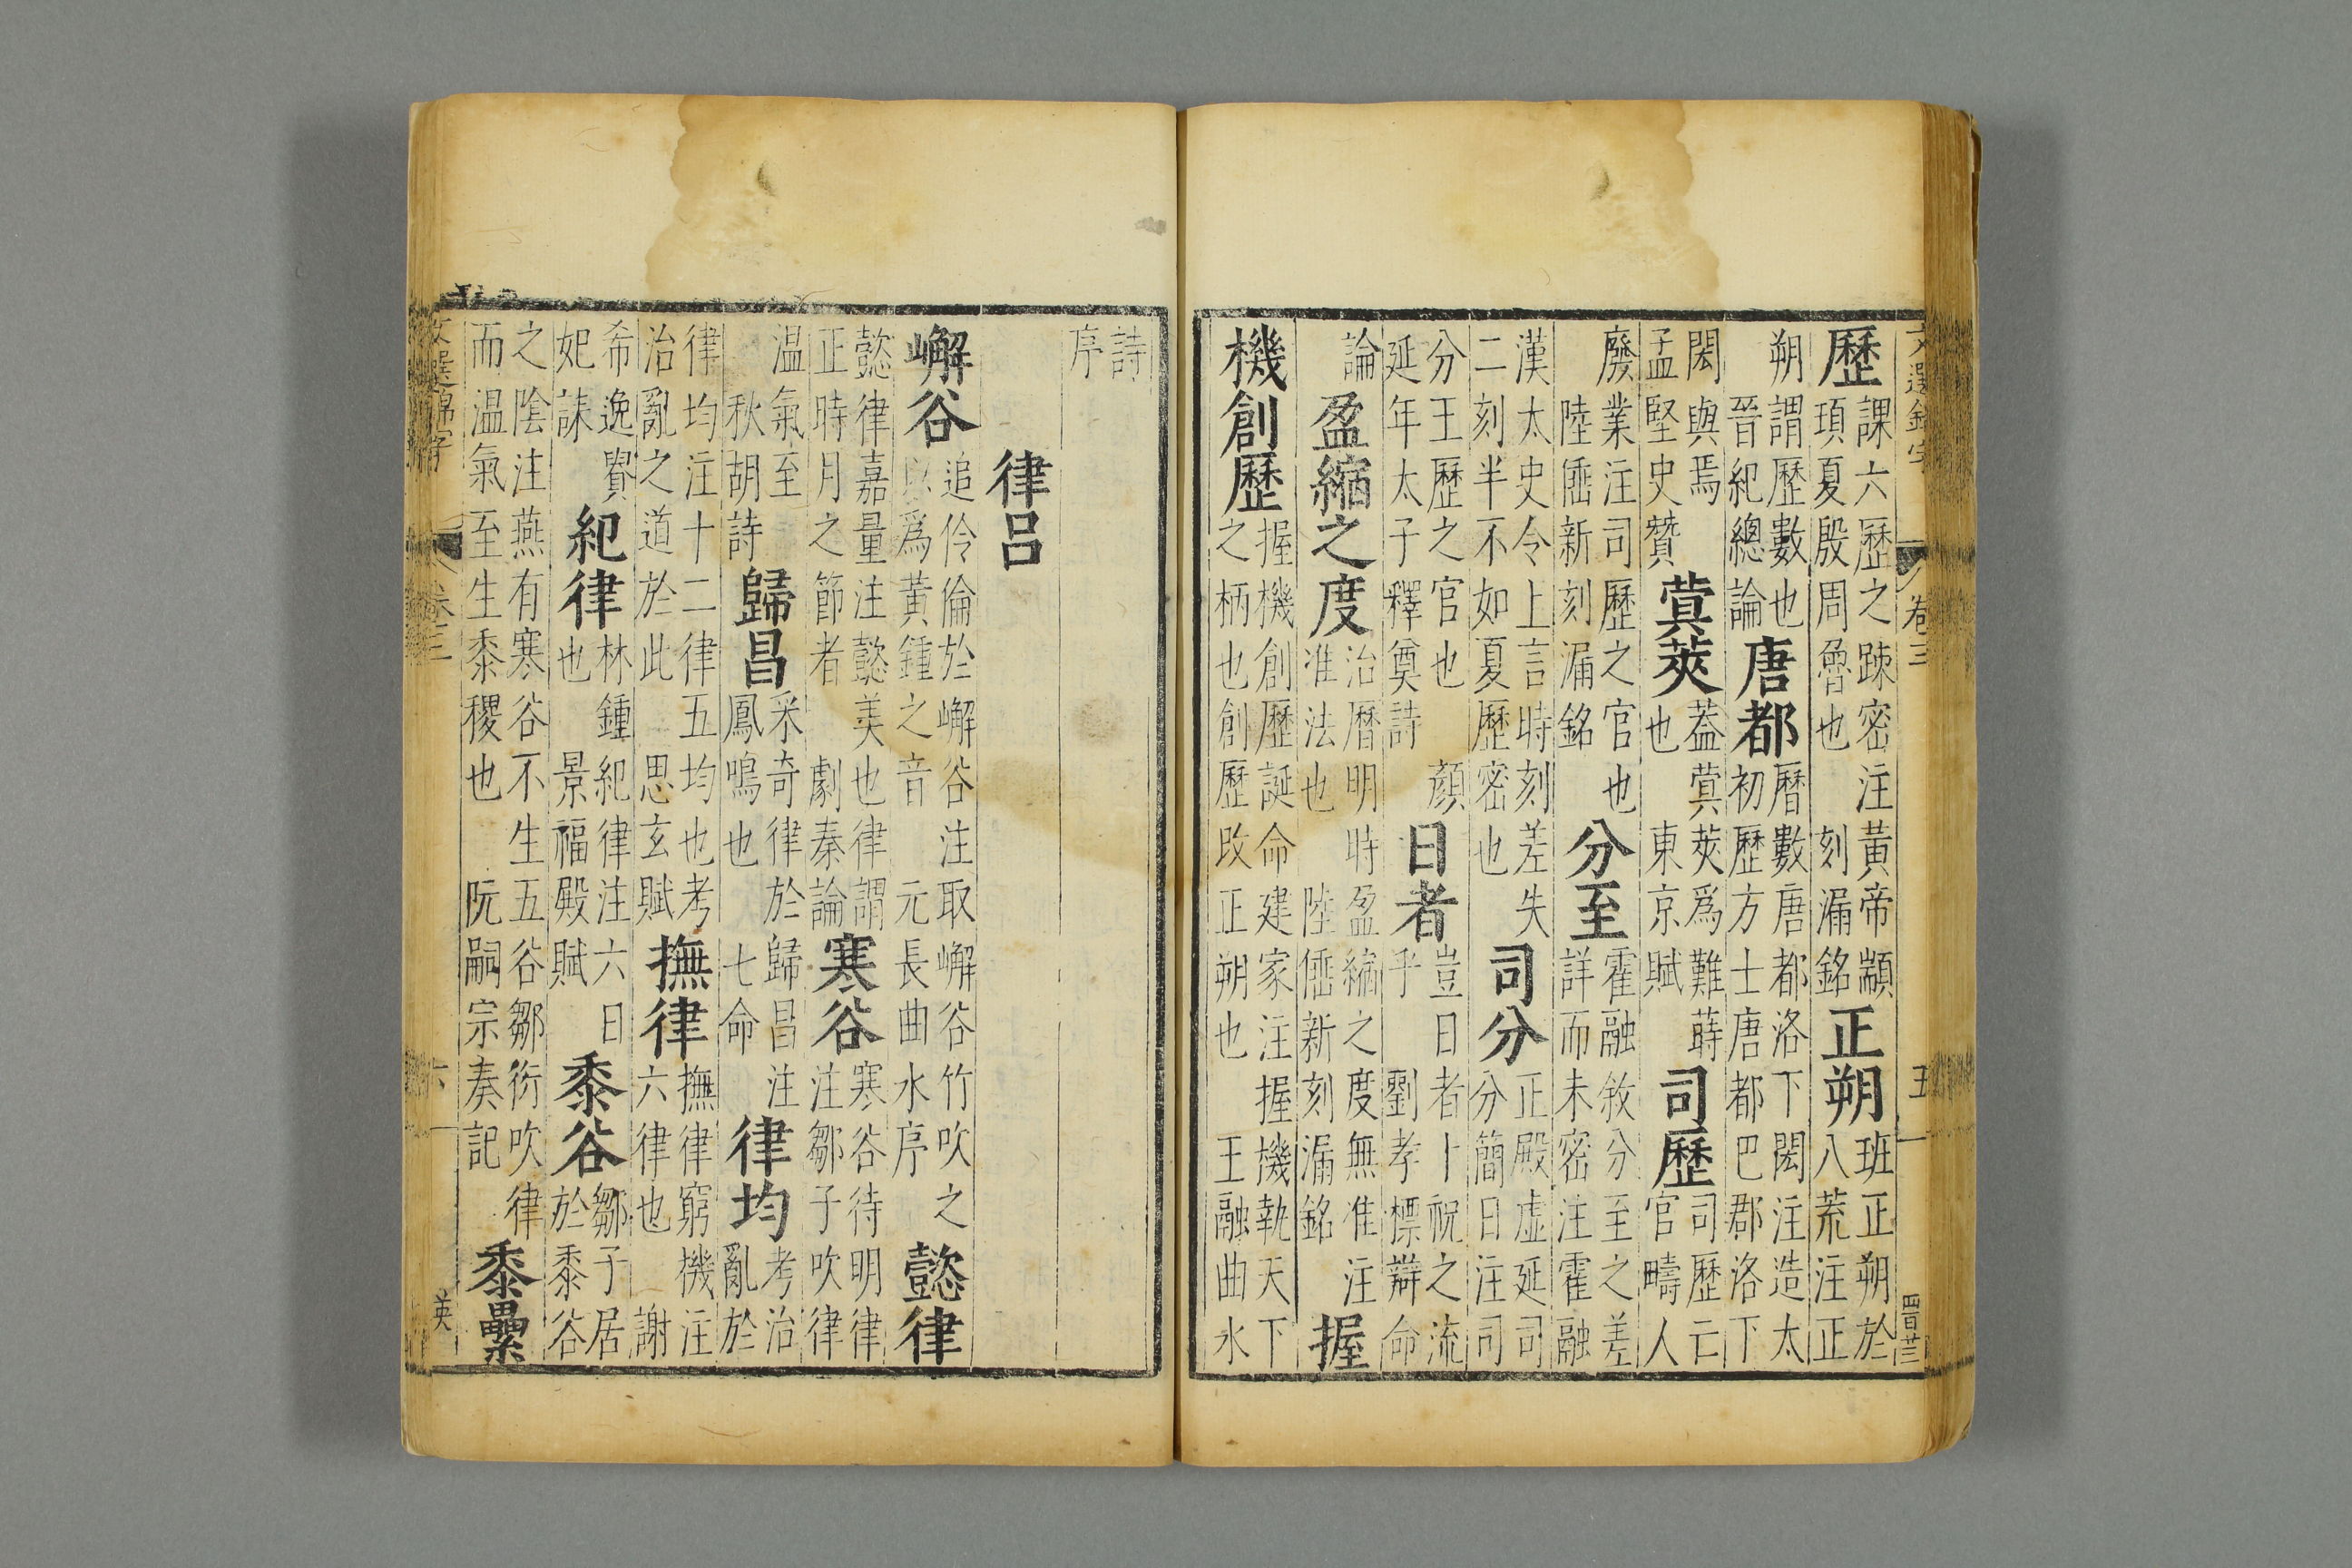 文選錦字 卷三 五 四百廿三
歷課六歷之踈密注黃帝顓頊夏殷周魯也刻漏銘正朔班正朔於八荒注正
朔謂歷數也晉紀總論唐都曆數唐都洛下閎注造太初歷方士唐都巴郡洛下
閎與焉孟堅史贊蓂莢蓋蓂莢爲難蒔也東京賦司歷司歷亡官疇人
廢業注司歷之官也陸倕新刻漏銘分至霍融敘分至之差詳而未密注霍融
漢太史令上言時刻差失二刻半不如夏歷密也司分正殿虛延司分簡日注司
分王歷之官也顏延年太子釋奠詩日者豈日者卜祝之流乎劉孝標辯命
論盈縮之度治曆明時盈縮之度無准注准法也陸倕新刻漏銘握
機創歷握機創歷誕命建家注握機執天下之柄也創歷改正朔也王融曲水
詩序
律呂
嶰谷追伶倫於嶰谷注取嶰谷竹吹之以爲黃鍾之音元長曲水序懿律
懿律嘉量注懿美也律謂正時月之節者劇秦論寒谷寒谷待明律注鄒子吹律
溫氣至秋胡詩歸昌采奇律於歸昌注鳳鳴也七命律均考治亂於
律均注十二律五均也考治亂之道於此思玄賦撫律撫律窮機注六律也謝
希逸貴妃誄紀律林鍾紀律注六日也景福殿賦黍谷鄒子居於黍谷
之陰注燕有寒谷不生五谷鄒衍吹律而溫氣至生黍稷也阮嗣宗奏記黍纍
文選錦字 卷三 六 英